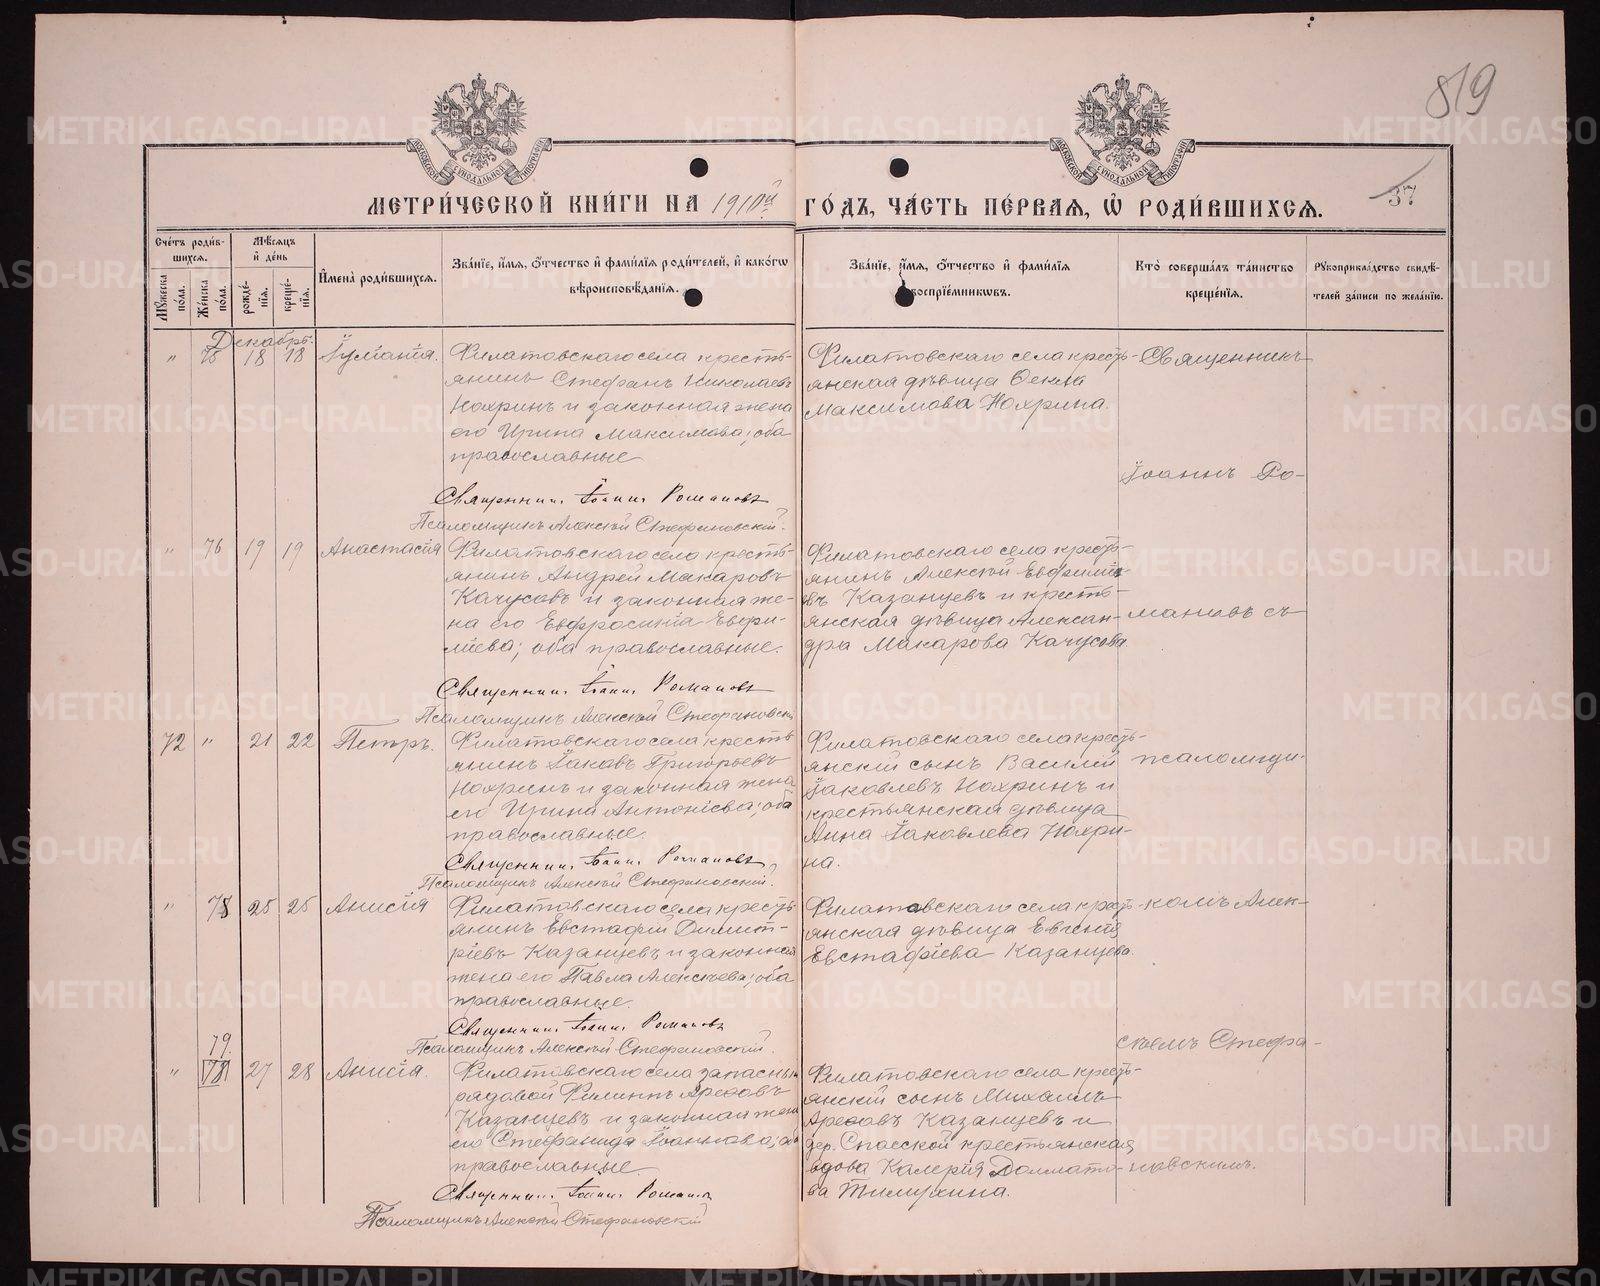 819
МЕТРИ́ЧЕСКОЙ КНИ́ГИ НА 1910й ГО́ДЪ, ЧА́СТЬ ПЕ́РВАЯ, Ѡ РОДИ́ВШИХСЯ.
37
Сче́тъ роди́в-
шихся.
Му́жеска пола.
Же́нска по́ла.
Мѣ́сяцъ
и де́нь
рожде́-
нія.
креще́-
нія.
Имена̀ роди́вшихся.
Зва́ніе, и́мя, о́тчество и фами́лія роди́телей, и како́гѡ
вѣроисповѣ́данія.
Зва́ніе, и́мя, о́тчество и фами́лія
воспріе́мникѡвъ.
Кто̀ соверша́лъ та́инство
креще́нія.
Рукоприкла́дство свидѣ́-
телей за́писи по жела́нію.
Декабрь.
" 75 18 18 Іуліанія.
Филатовскаго села кресть-
янинъ Стефанъ Николаевъ
Нохринъ и законная жена
его Ирина Максимова; оба
православные
Священник Іоанн Романовъ
Псаломщикъ Алексѣй Стефановскій.
Филатовскаго села кресть-
янская дѣвица Ѳекла
Максимова Нохрина.
Священникъ
Іоаннъ Ро-
" 76 19 19 Анастасія
Филатовскаго села кресть-
янинъ Андрей Макаровъ
Качусовъ и законная же-
на его Евфросинія
оба православные.
Священник Іоанн Романовъ
Псаломщикъ Алексѣй Стефановскій
Филатовскаго села кресть-
янинъ Алексѣй
въ Казанцевъ и кресть-
янская дѣвица Алексан-
дра Макарова Качусова.
мановъ съ
72 " 21 22 Петръ.
Филатовскаго села кресть
янинъ Іаковъ Григорьевъ
Нохринъ и законная жена
его Ирина Антоніева; оба
православные.
Священник Іоанн Романовъ
Псаломщикъ Алексѣй Стефановскій.
Филатовскаго села кресть-
янскій сынъ Василій
Іаковлевъ Нохринъ и
крестьянская дѣвица
Анна Іаковлева Нохри-
на.
псаломщи-
" 78 25 25 Анисія
Филатовскаго села кресть-
янинъ Евстафій Димит-
ріевъ Казанцевъ и законная
жена его Павла Алексѣева; оба
православные.
Священник Іоанн Романовъ
Псаломщикъ Алексѣй Стефановскій.
Филатовскаго села кресть-
янская дѣвица Евгенія
Евстафіева Казанцева.
комъ Алек-
сѣемъ Стефа-
79.
" 78 27 28 Анисія.
Филатовскаго села запасный
рядовой Филиппъ Арефовъ
Казанцевъ и законная жена
его Стефанида Іоаннова; оба
православные.
Священник Іоанн Романовъ
Псаломщикъ Алексѣй Стефановскій
Филатовскаго села кресть-
янскій сынъ Михаилъ
Арефовъ Казанцевъ и
дер. Спасской крестьянская
вдова Калерія Долмато-
ва Тимухина.
новскимъ.
METRIKI.GASO-URAL.RU